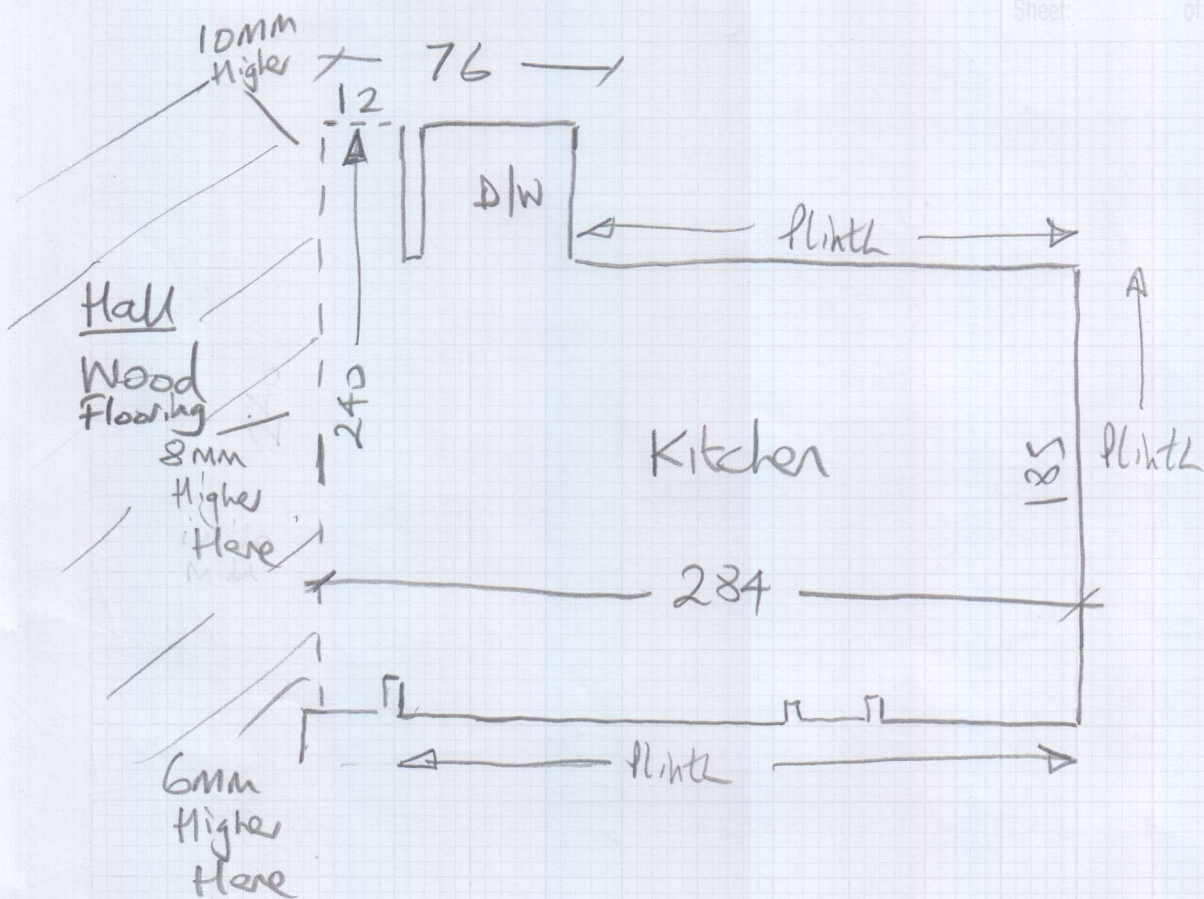 Sheet: of
10MM
Higher
76
12
D/W
Plinth
Hall
Wood
Flooring
240
8MM
Higher
Here
Kitchen
185
Plinth
284
Plinth
6MM
Higher
Here